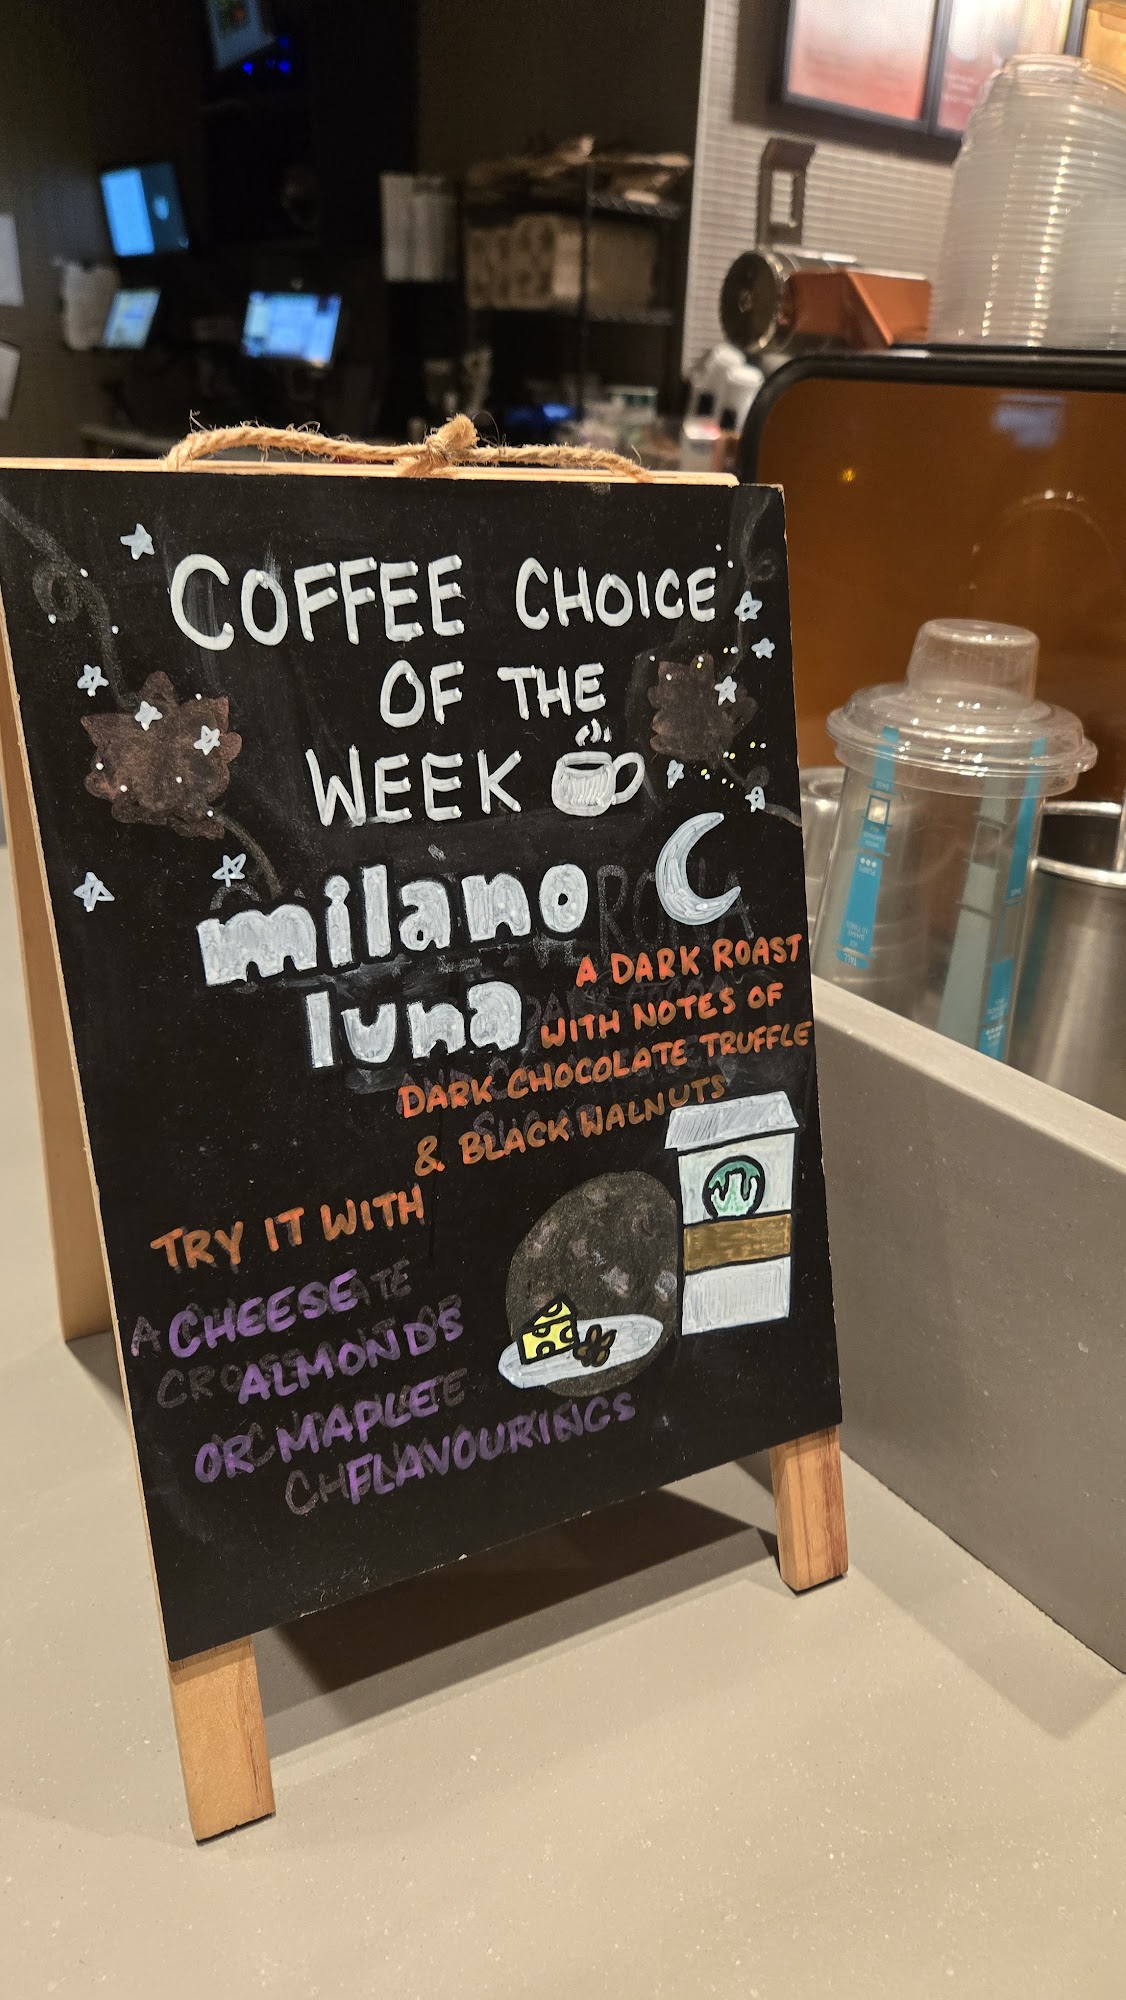 COFFEE CHOICE
OF THE
WEEK
milano
luna
A DARK ROAST
WITH NOTES OF
DARK CHOCOLATE TRUFFLE
& BLACK WALNUTS
TRY IT WITH
CHEESE
ALMONDS
OR MAPLE
FLAVOURINGS